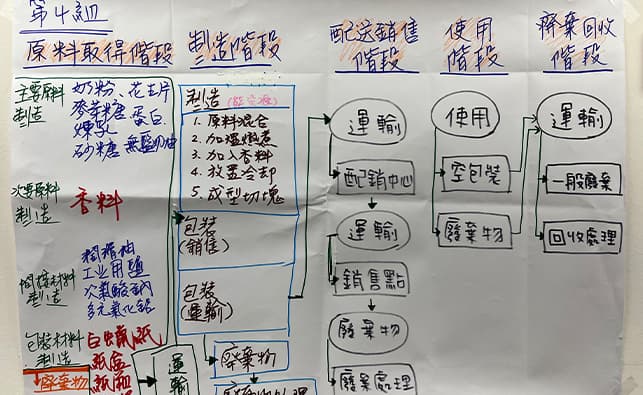 第4組
原料取得階段
主要原料
製造
奶粉、花生片
麥芽糖、蛋白
煉乳
砂糖、無鹽奶油
次要原料
製造
香料
間接材料
製造
工業用鹽
次氯酸鈉
多元氯化鋁
包裝材料
製造
白蠟紙
紙盒
廢棄物
運
輸
製造階段
製造
1. 原料混合
2. 加溫熬煮
3. 加入香料
4. 放置冷卻
5. 成型切塊
包裝
(銷售)
包裝
(運輸)
廢棄物
配送銷售
階段
運輸
配銷中心
運輸
銷售點
廢棄物
廢棄處理
使用
階段
使用
空包裝
廢棄物
廢棄回收
階段
運輸
一般廢棄
回收處理